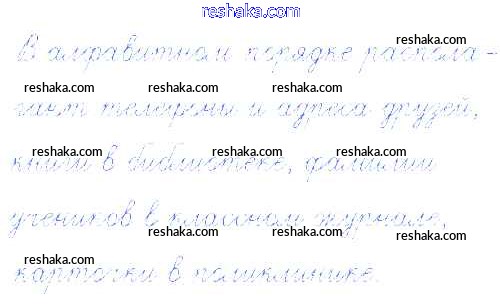 reshaka.com
В алфавитном порядке распола-
reshaka.com reshaka.com reshaka.com
гают телефоны и адреса друзей,
reshaka.com reshaka.com reshaka.com
книги в библиотеке, фамилии
reshaka.com
учеников в классном журнале,
reshaka.com reshaka.com reshaka.com
карточки в поликлинике.